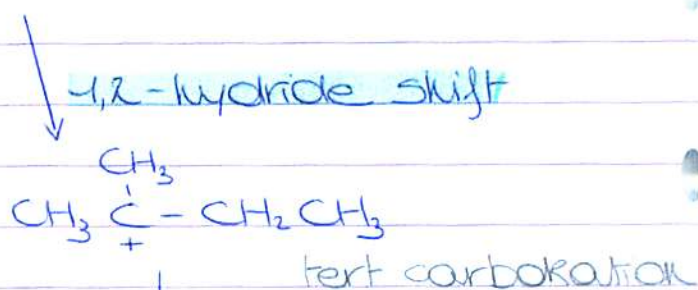 1,2-hydride shift
CH₃
CH₃ C - CH₂ CH₃
+
tert carbokation